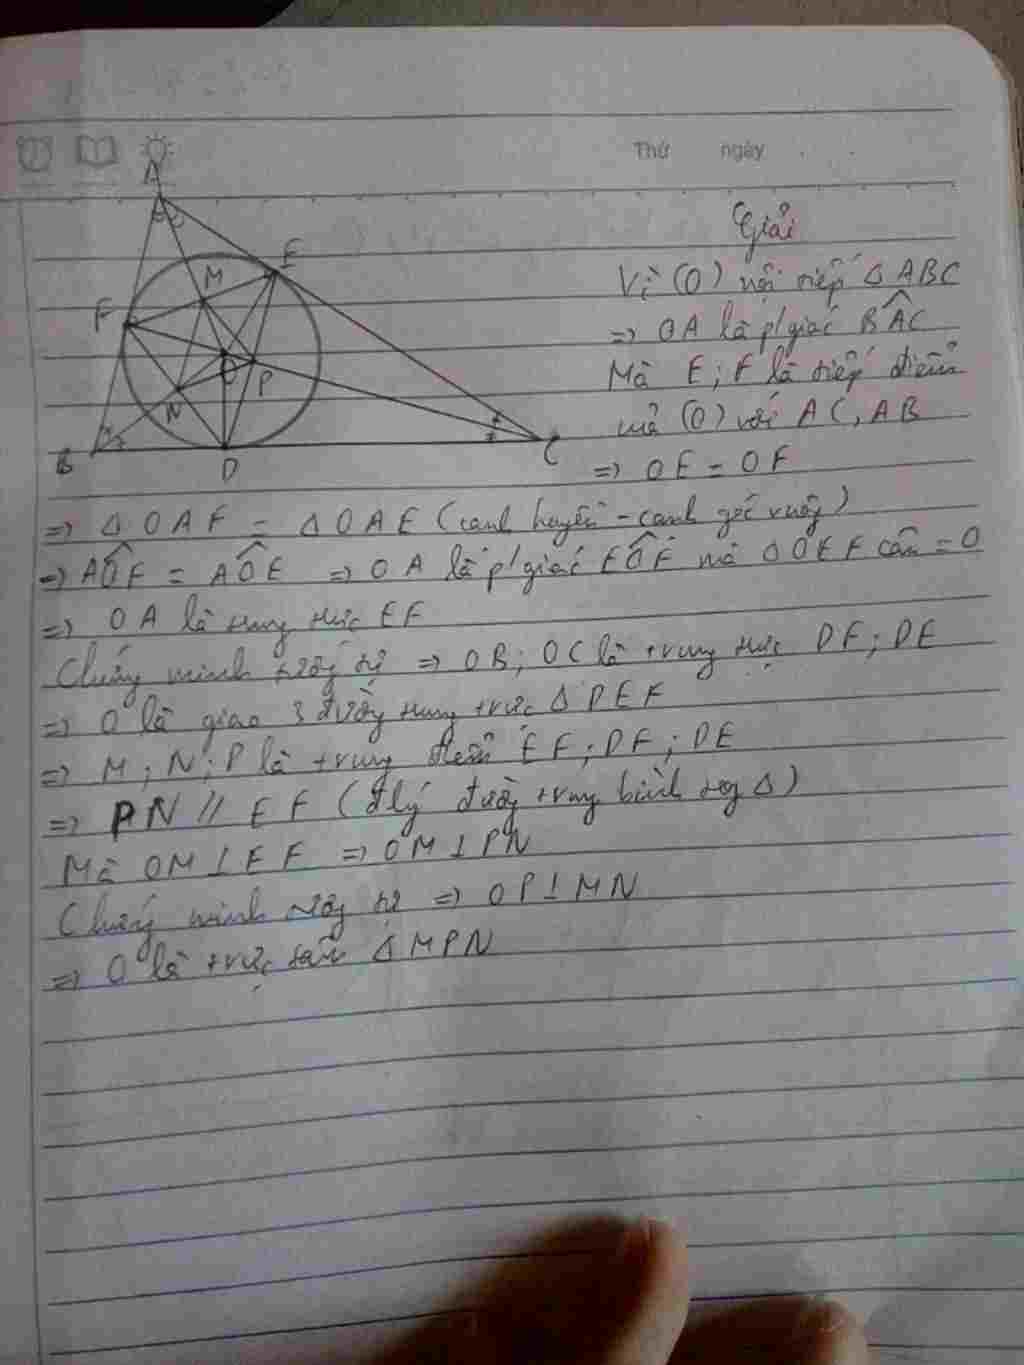 Thứ ngày
A
E
M
F
O
P
N
B
D
C
Giải
Vì (O) nội tiếp Δ ABC
=> OA là p/giác BAC
Mà E; F là tiếp điểm
mà (O) với AC, AB
=> OE = OF
=> Δ OAF = Δ OAE (cạnh huyền - cạnh góc vuông)
=> AOF = AOE => OA là p/giác EOF mà Δ OEF cân = O
=> OA là trung trực EF
Chứng minh tương tự => OB; OC là trung trực DF; DE
=> O là giao 3 đường trung trực Δ DEF
=> M; N; P là trung điểm EF; DF; DE
=> PN // EF (đ/lý đường trung bình trog Δ)
Mà OM ⊥ EF => OM ⊥ PN
Chứng minh tương tự => OP ⊥ MN
=> O là trực tâm Δ MPN